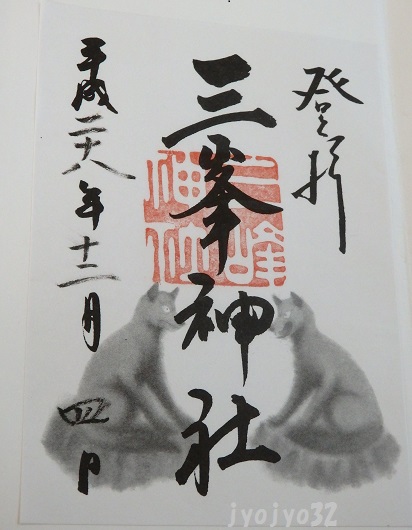 登拝
三峯神社
三峰神社
平成二十八年十二月四日
jyojyo32